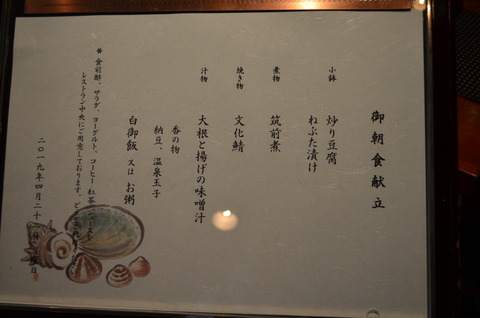 御朝食献立
小鉢
炒り豆腐
ねぶた漬け
煮物
筑前煮
焼き物
文化鯖
汁物
大根と揚げの味噌汁
香の物
納豆、温泉玉子
白御飯 又は お粥
* 食前酢、サラダ、ヨーグルト、コーヒー、紅茶、
レストラン中央にご用意しております。
二〇一九年四月二十